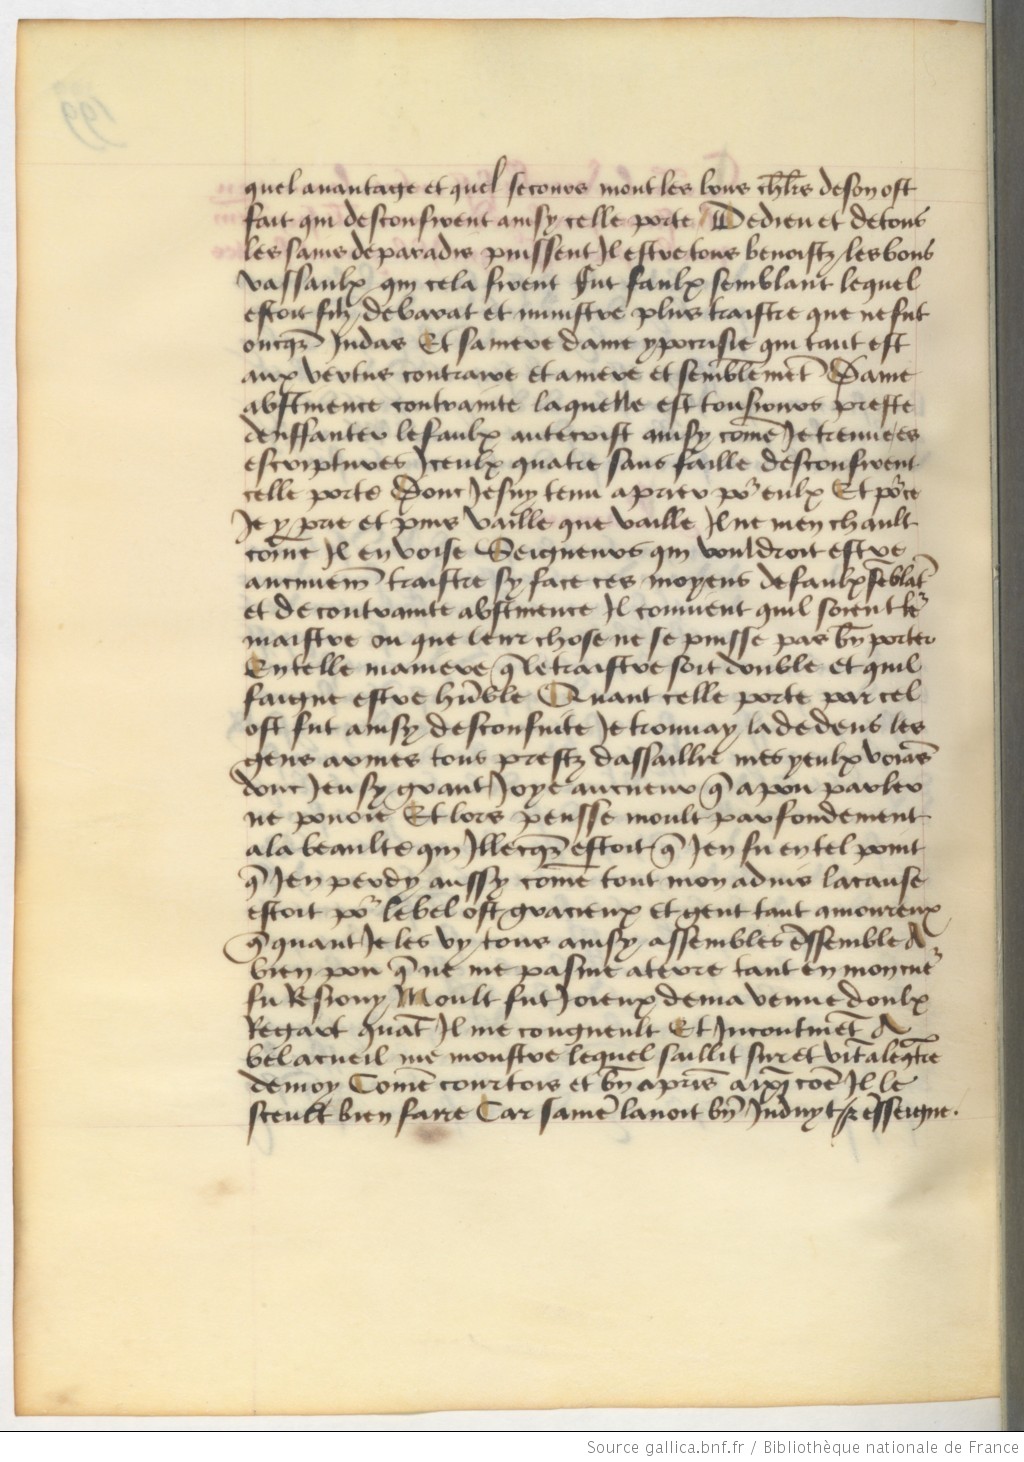 quel auantage et quel secours mont les bons chlrs de son ost
fait qui desconfirent ainsy celle porte De dieu et de tous
les sains de paradis puissent Il estre tous benoistz les bons
vassaulx qui cela firent Fut faulx semblant lequel
estoit filz de barat et ministre plus traistre que ne fut
oncq̃s Iudas Et sa mere dame ypocrisie qui tant est
aux vertus contraire et amere et semblemẽt Dame
abstinence contrainte laquelle est tousiours preste
denffanter le faulx antecrist ainsy cõme Ie treuue es
escriptures Iceulx quatre sans faille desconfirent
celle porte Donc Ie suy tenu a prier por eulx Et por ce
Ie y prie et puis vaille que vaille Il ne men chault
cõme Il en voise Seigneurs qui vouldroit estre
aucunemẽt traistre sy face ces moyens de faulx sẽblãt
et de contrainte abstinence Il conuient quil soient le
maistre ou que leur chose ne se puisse pas bñ porter
En telle maniere q̃ le traistre soit double et quil
faigne estre hũble Quant celle porte par cel
ost fut ainsy desconfuite Ie trouuay la dedens les
gens armes tous prestz dassaillir mes yeulx voiãs
donc Ieu sy grant Ioye au cueur q̃ a pou parler
ne pouoie Et lors pensse moult parfondement
a la beaulte qui Illecq̃s estoit q̃ Ien fu en tel point
q̃ Ien perdy aussy cõme tout mon aduis la cause
estoit por le bel ost gracieux et gent tant amoureux
q̃ quant Ie les vy tous ainsy assembles ẽssemble A
bien pou q̃ ne me pasme a terre tant en mon cuer
fu Resiouy Moult fut Ioieux de ma venue doulx
Regart quãt Il me congneult Et Incontinẽt A
bel acueil me monstre lequel saillit sur et vĩt a lẽcõtre
de moy Cõme courtois et bñ apris ainsi cõe Il le
sceult bien faire Car sa mere lauoit bñ Induyt et ẽsseigne.
Source gallica.bnf.fr / Bibliothèque nationale de France